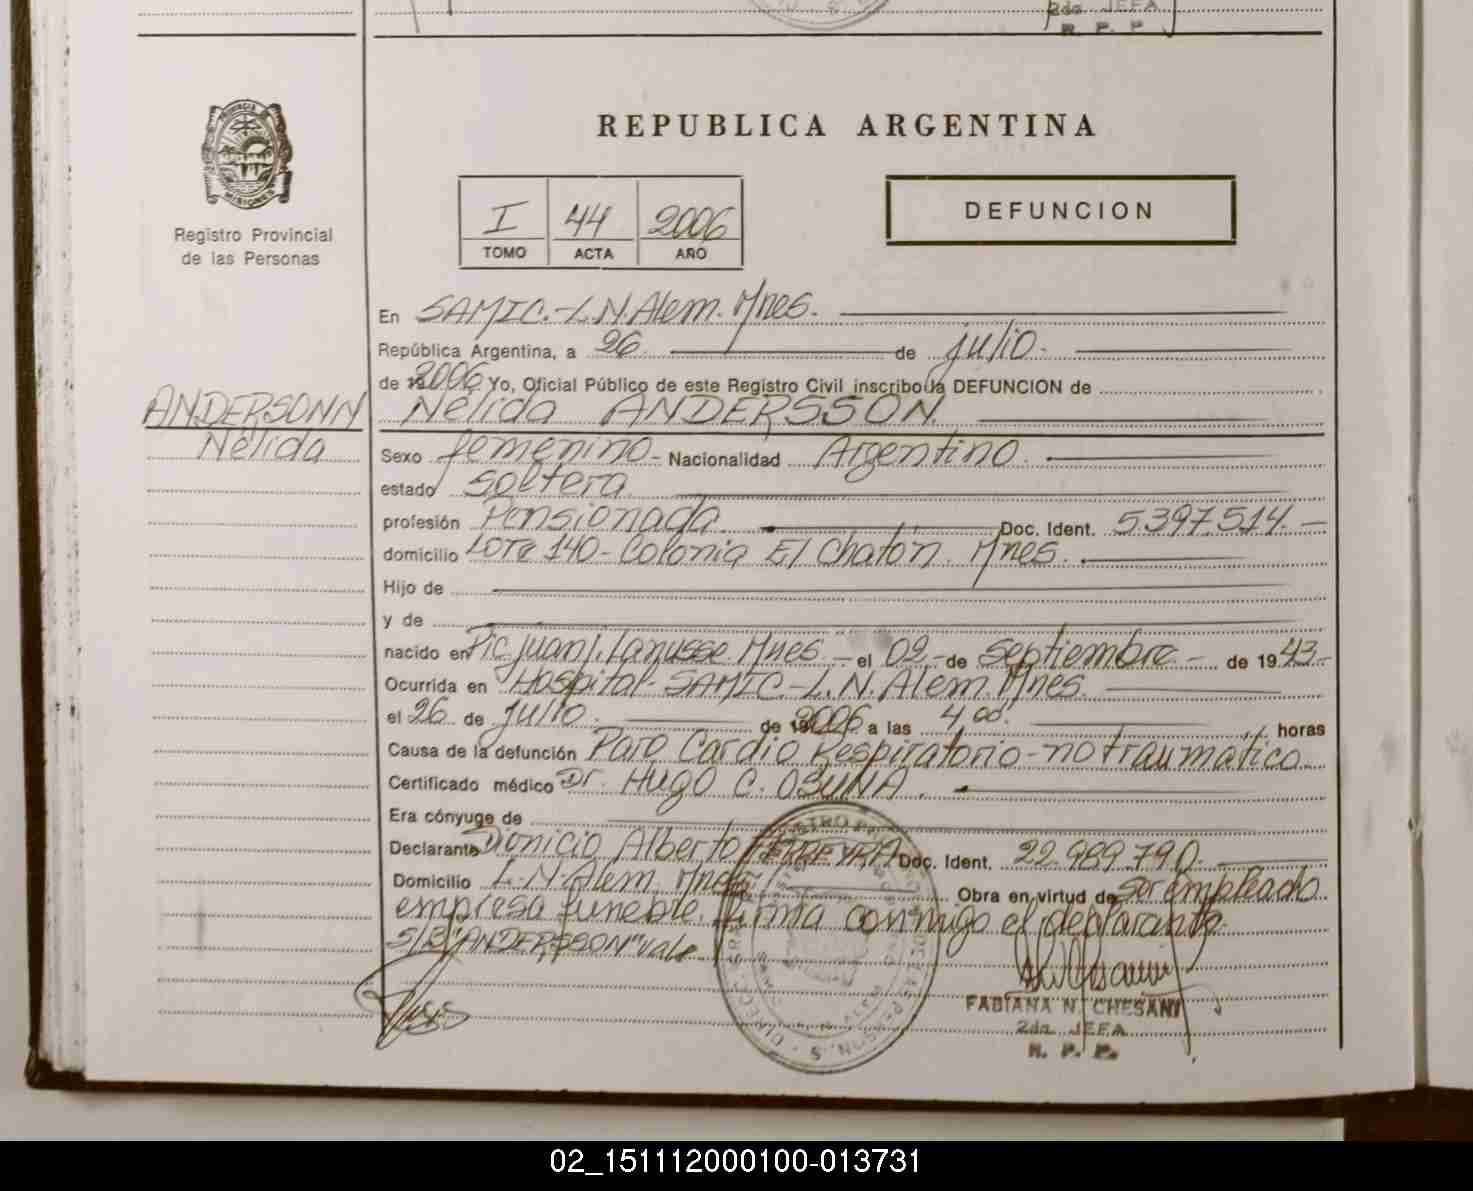 2da JEFA
R. P. P.
PROVINCIA DE
MISIONES
Registro Provincial
de las Personas
REPUBLICA ARGENTINA
I 44 2006
TOMO ACTA AÑO
DEFUNCION
En SAMIC.-L.N.Alem. Mnes.
República Argentina, a 26 de julio.
de 2006 Yo, Oficial Público de este Registro Civil inscribo la DEFUNCION de
Nélida ANDERSSON.
ANDERSONN
Nélida
Sexo femenino- Nacionalidad Argentino.
estado soltera
profesión Pensionada. Doc. Ident. 5.397.514.-
domicilio LOTE 140- Colonia El Chatón. Mnes.
Hijo de
y de
nacido en Pic. Juan J. Lanusse. Mnes.- el 02.-de septiembre- de 1943-
Ocurrida en Hospital-SAMIC-L.N.Alem. Mnes.
el 26 de julio. de 2006 a las 4,00. horas
Causa de la defunción Paro Cardio Respiratorio-no traumático.
Certificado médico Dr. Hugo C. OSUNA.
Era cónyuge de
Declarante Dionicio Alberto FERREYRA Doc. Ident. 22.989.790.
Domicilio L.N.Alem. Mnes. Obra en virtud de ser empleado
empresa funeble. Firma conmigo el declarante.
S/B "ANDERSSON" vale.
FABIANA N. CHESANI
2da JEFA
R. P. P.
02_151112000100-013731